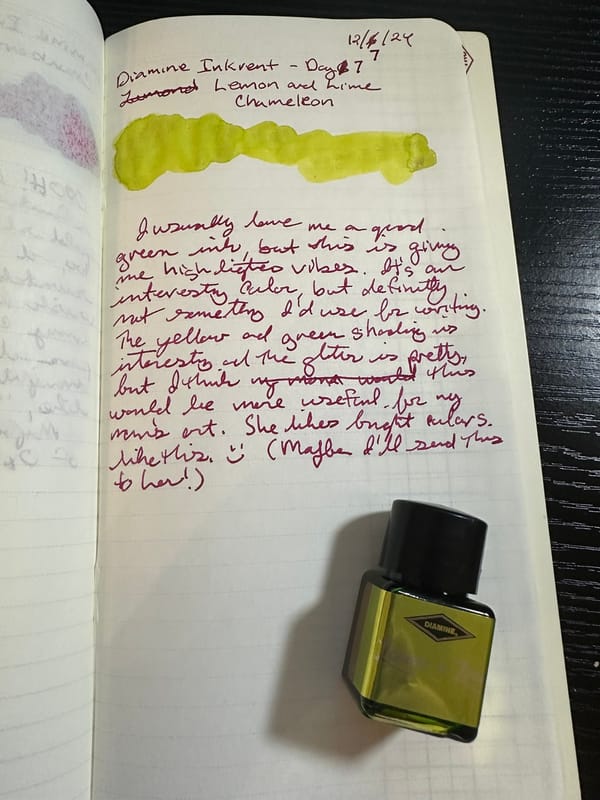 12/6/24
7
Diamine Inkvent - Day 6 7
Lemond Lemon and Lime
Chameleon
I usually love me a good
green ink, but this is giving
me highlighter vibes. It's an
interesting color, but definitly
not something I'd use for writing.
The yellow and green shading is
interesting and the glitter is pretty,
but I think my moms would this
would be more useful for my
mom's art. She likes bright colors
like this. :) (Maybe I'll send this
to her!)
DIAMINE